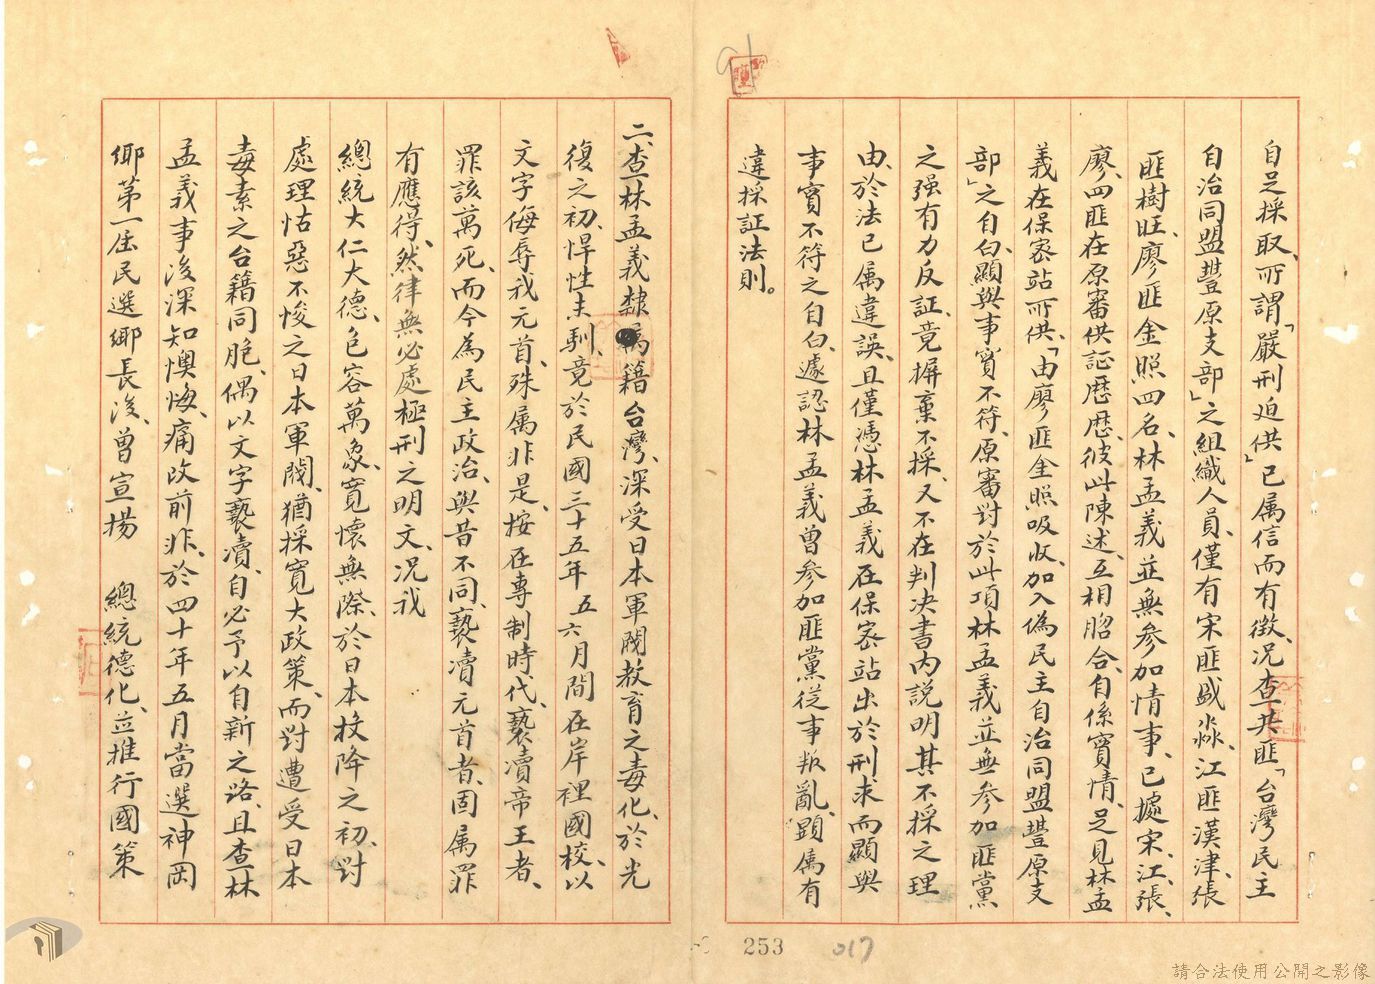 自足採取、所謂「嚴刑迫供」已属信而有徵、况查共匪「台灣民主
自治同盟豐原支部」之組織人員、僅有宋匪盛淼、江匪漢津、張
匪樹旺、廖匪金照四名、林孟義並無參加情事、已據宋、江、張、
廖、四匪在原審供証歷歷、彼此陳述、互相脗合、自係實情、足見林孟
義在保密站所供、「由廖匪金照吸收、加入偽民主自治同盟豐原支
部」之自白、顯與事實不符、原審對於此項林孟義並無參加匪黨
之强有力反証、竟摒棄不採、又不在判决書内説明其不採之理
由、於法已属違誤、且僅憑林孟義在保密站出於刑求而顯與
事實不符之自白、遽認林孟義曾參加匪黨從事叛亂、顕属有
違採証法則。
二、查林孟義隸籍台灣、深受日本軍閥教育之毒化、於光
復之初、悍性未馴、竟於民國三十五年五六月間在岸裡國校、以
文字侮辱我元首、殊属非是、按在專制時代、褻瀆帝王者、
罪該萬死、而今為民主政治、與昔不同、褻瀆元首者、固属罪
有應得、然律無必處極刑之明文、况我
總統大仁大德、包容萬象、寬懷無際、於日本投降之初、對
處理怙惡不悛之日本軍閥、猶採寬大政策、而對遭受日本
毒素之台籍同胞、偶以文字褻瀆、自必予以自新之路、且查林
孟義事後深知懊悔、痛改前非、於四十年五月當選神岡
鄉第一屆民選鄉長後、曾宣揚 總統德化、並推行國策
253
017
請合法使用公開之影像